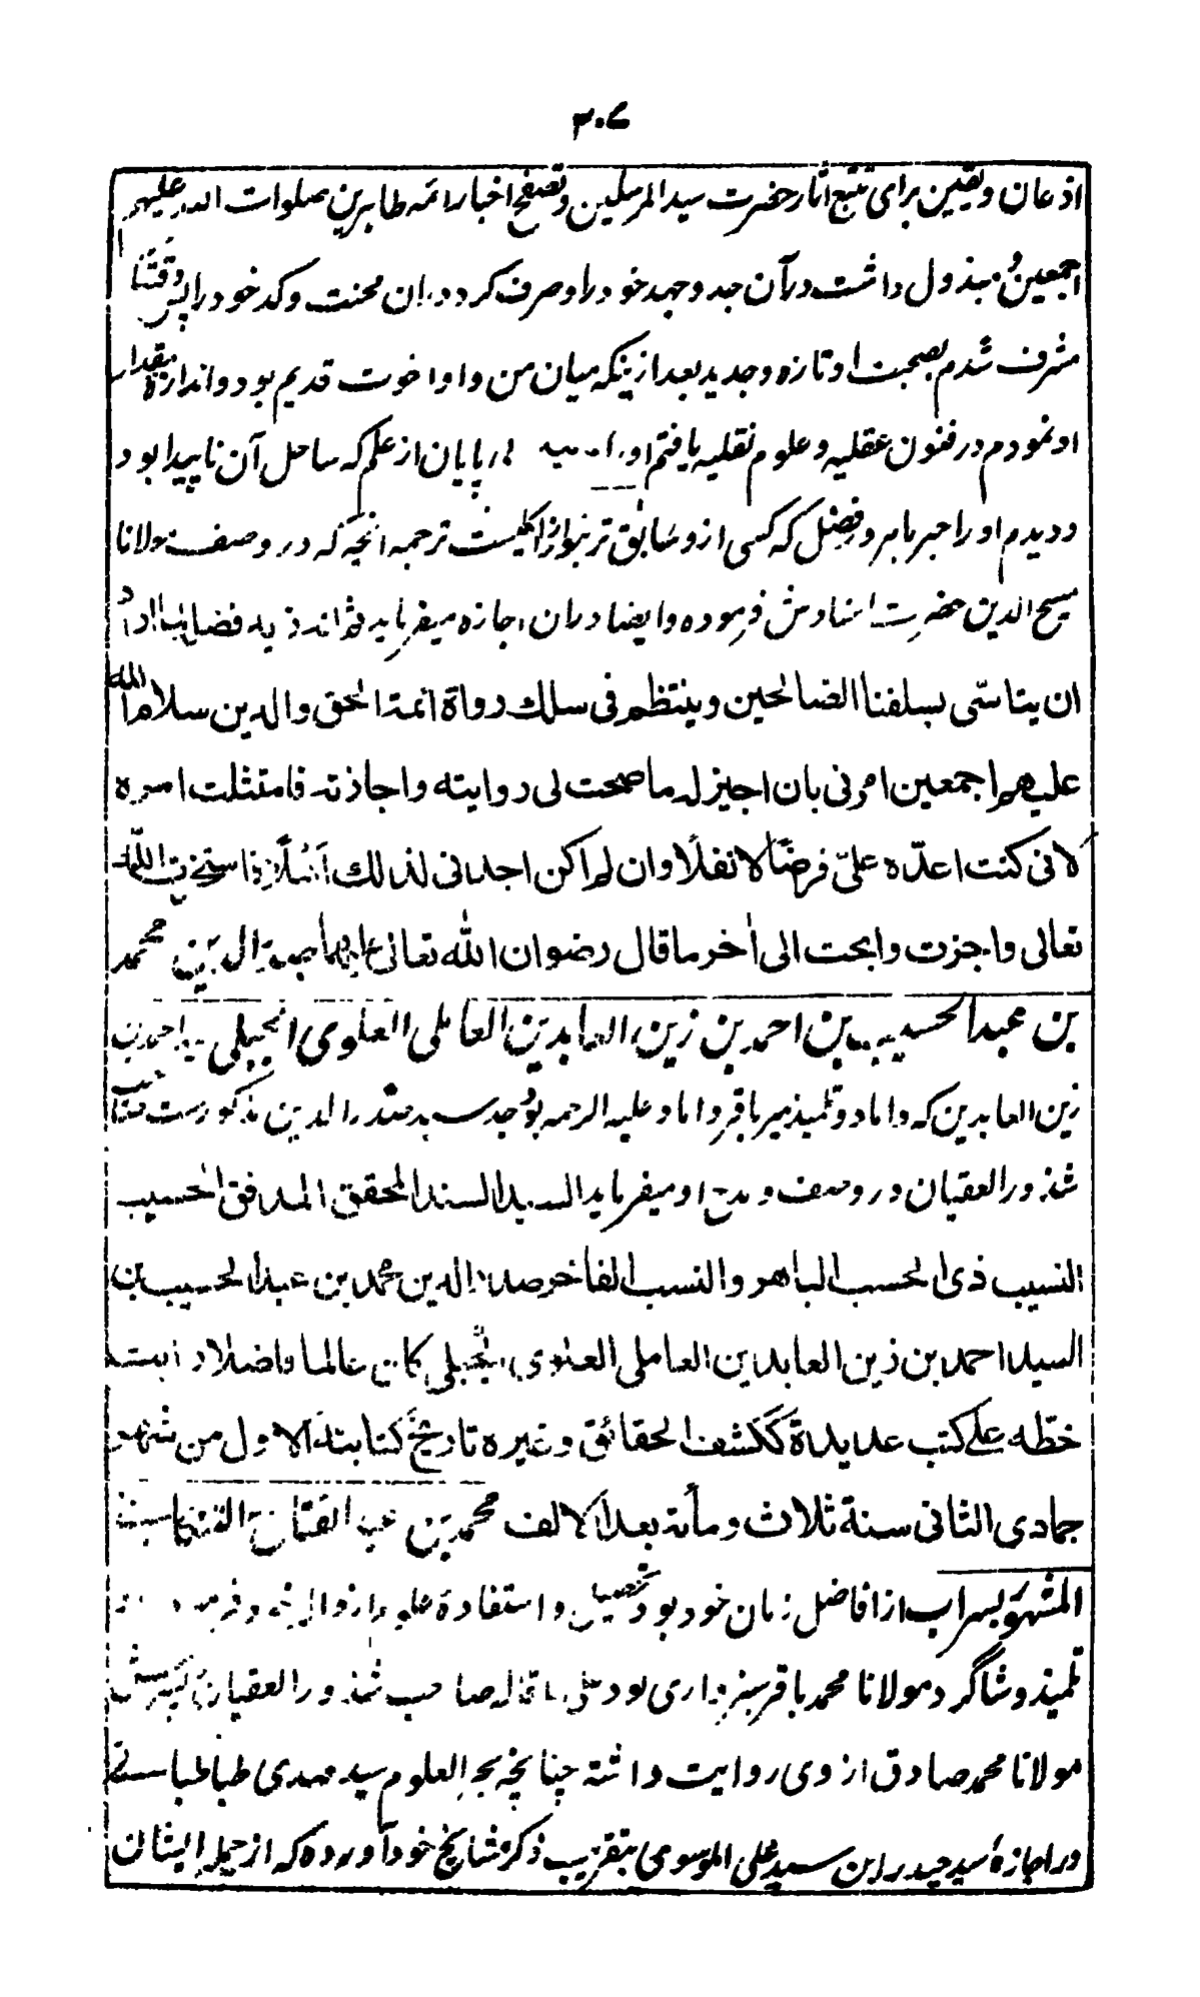 ۳۰۷
اذعان و یقین برای تتبع آثار حضرت سید المرسلین و تصفح اخبار ائمه طاهرین صلوات الله علیهم
اجمعین مبذول داشت در آن جد و جهد خود را و صرف کرد در ان محنت و کد خود را پس وقتنا
مشرف شدم بصحبت او تازه و جدید بعد از ینکه میان من و او اخوت قدیم بود و اندازه مقدار
او نمودم در فنون عقلیه و علوم نقلیه یافتم او پایان از علم که ساحل آن ناپیدا بود
و دیدم او را حبر ماهر و فضل که کسی از و سابق تر نیوازا کلیست ترجمه انچه که در وصف مولانا
مسیح الدین حضرت استادش فرموده و ایضا در ان اجازه میفرماید ثم انه
ان یتاسّی بسلفنا الصالحین وینتظم فی سلك رواة ائمة الحق والدین سلام الله
علیهم اجمعین امرنی بان اجیزله ما صحت لی روایته واجازته فامتثلت امره
لانی کنت اعدّه علیّ فرضًا لا نفلًا وان لم اکن اجدنی لذلك اهلًا فاستخرت الله
تعالی واجزت وابحت الی اٰخر ما قال رضوان الله تعالی علیهما صدر الدین محمد
بن عبد الحسیب بن احمد بن زین العابدین العاملی العلوی الجبلی سید احمد بن
زین العابدین که داماد و تلمیذ میر باقر داماد علیه الرحمه بود جد سید صدر الدین مذکورست صاحب
شذور العقیان در وصف و مدح او میفرماید السید السند المحقق المدقق الحسیب
النسیب ذی الحسب الباهر والنسب الفاخر صدر الدین محمد بن عبد الحسیب بن
السید احمد بن زین العابدین العاملی العلوی الجبلی کان عالما فاضلا رایت
خطّه علی کتب عدیدة ککشف الحقائق وغیره تاریخ کتابته الاول من شهر
جمادی الثانی سنة ثلاث ومأته بعد الالف محمد بن عبد الفتاح التنکابنی
المشهور بسراب از افاضل زمان خود بود تحصیل و استفادهٔ علوم از
تلمیذ و شاگرد مولانا محمد باقر سبزواری بود علی ما قاله صاحب شذور العقیان پسرش
مولانا محمد صادق از وی روایت داشته چنانچه بحر العلوم سید مهدی طباطبائی
در اجازهٔ سید حیدر ابن سید علی الموسوی بتقریب ذکر مشایخ خود آورده که از جمله ایشان